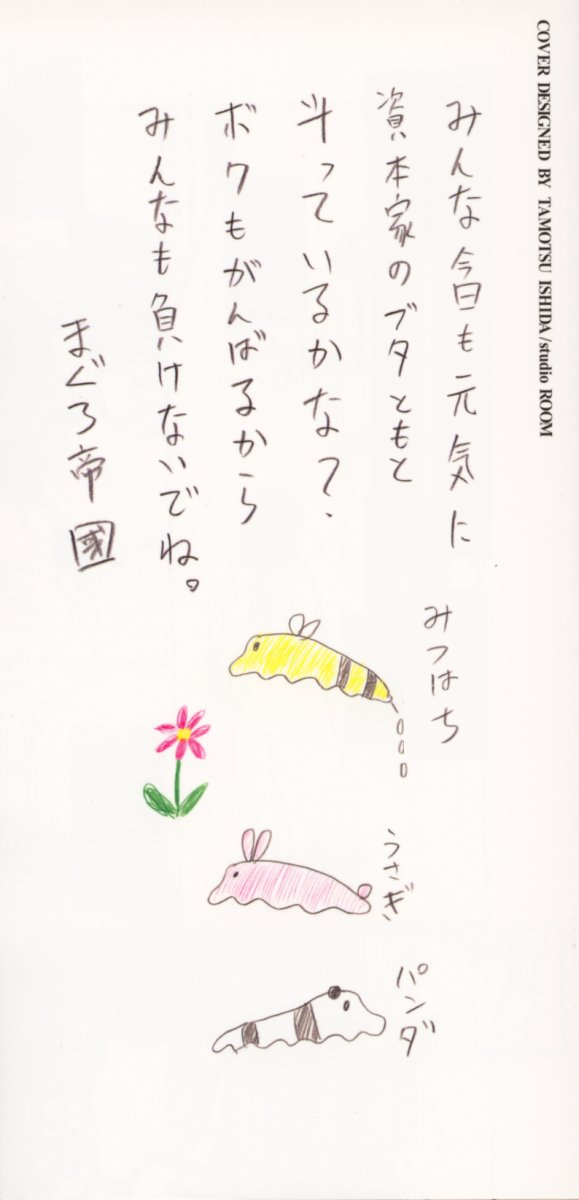 COVER DESIGNED BY TAMOTSU ISHIDA/studio ROOM
みんな今日も元気に
資本家のブタともと
斗っているかな?
ボクもがんばるから
みんなも負けないでね。
まぐろ帝國
みつはち
うさぎ
パンダ